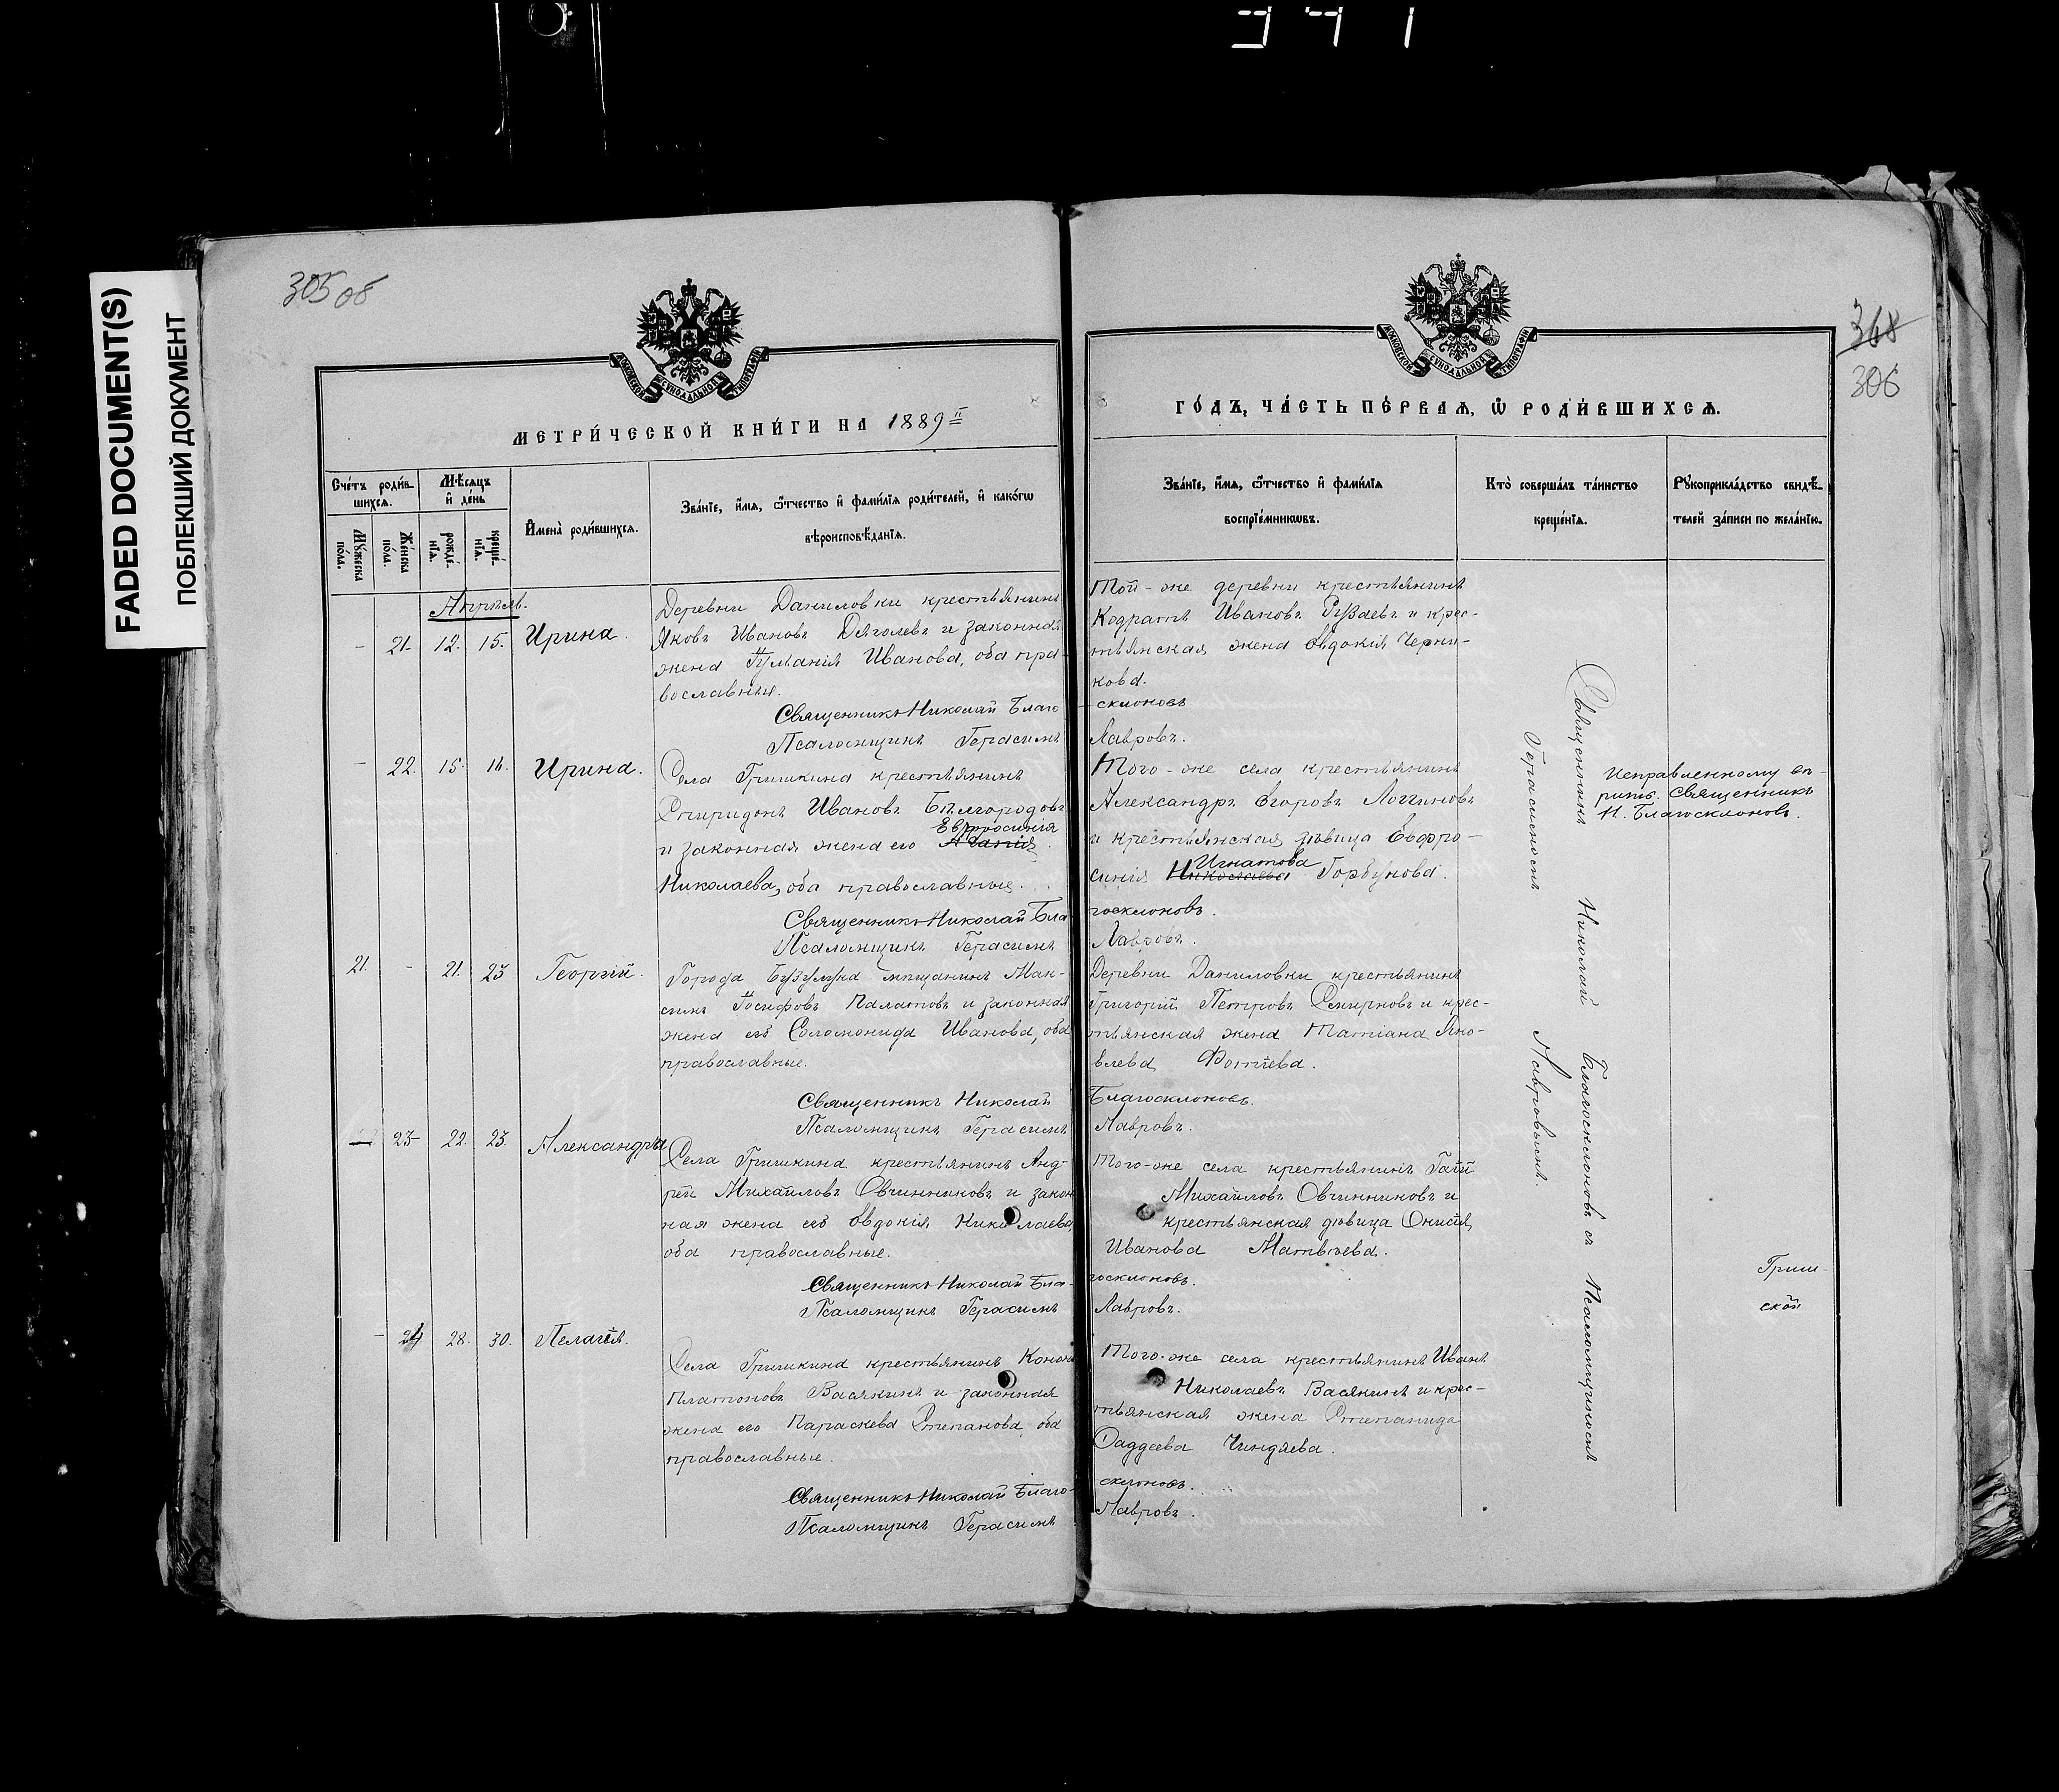 341
FADED DOCUMENT(S)
ПОБЛЕКШИЙ ДОКУМЕНТ
305 об
368
306
МОСКОВСКОЙ СѴНОДАЛЬНОЙ ТИПОГРАФІИ
МОСКОВСКОЙ СѴНОДАЛЬНОЙ ТИПОГРАФІИ
МЕТРИ́ЧЕСКОЙ КНИ́ГИ НА 1889й
ГО́ДЪ, ЧА́СТЬ ПЕ́РВАЯ, Ѡ РОДИ́ВШИХСЯ.
Счетъ родив-
шихся.
Мѣсяцъ
и день
Мужеска пола.
Женска пола.
рожде-
нія.
креще-
нія.
Имена родившихся.
Званіе, имя, ѿчество и фамилія родителей, и какогѡ
вѣроисповѣданія.
Званіе, имя, ѿчество и фамилія
воспріемниковъ.
Кто совершалъ таинство
крещенія.
Рукоприкладство свидѣ-
телей записи по желанію.
Апрѣль.
- 21. 12. 15. Ирина.
Деревни Даниловки крестьянинъ
Яковъ Ивановъ Дяголевъ и законная
жена Іуліанія Иванова, оба пра-
вославные.
Священникъ Николай Благо
Псаломщикъ Герасимъ
Той-же деревни крестьянинъ
Кодратъ Ивановъ Рузаевъ и крес-
тьянская жена Евдокія Черни-
кова.
склоновъ
Лавровъ.
- 22. 15. 16. Ирина.
Села Гришкина крестьянинъ
Спиридонъ Ивановъ Бѣлгородовъ
Евфросинія
и законная жена его Агапія
Николаева, оба православные.
Священникъ Николай Бла
Псаломщикъ Герасимъ
Того-же села крестьянинъ
Александръ Егоровъ Логгиновъ
и крестьянская дѣвица Евфро-
Игнатова
синія Николаева Горбунова.
госклоновъ.
Лавровъ.
Исправленному вѣ-
рить. Священникъ
Н. Благосклоновъ.
21. - 21. 23 Георгій.
Города Бузулука мѣщанинъ Мак-
симъ Іосифовъ Палатовъ и законная
жена его Соломонида Иванова, оба
православные.
Священникъ Николай
Псаломщикъ Герасимъ
Деревни Даниловки крестьянинъ
Григорій Петровъ Смирновъ и крес-
тьянская жена Татіана Яко-
влева Фотіева.
Благосклоновъ.
Лавровъ.
- 23 22. 23. Александра
Села Гришкина крестьянинъ Анд-
рей Михайловъ Овчинниковъ и закон
ная жена его Евдокія Николаева,
оба православные.
Священникъ Николай Бла-
Псаломщикъ Герасимъ
Того-же села крестьянинъ Гаій
Михайловъ Овчинниковъ и
крестьянская дѣвица Онисія
Иванова Матвѣева.
госклоновъ.
Лавровъ.
- 24 28. 30. Пелагія.
Села Гришкина крестьянинъ Конон
Платоновъ Васякинъ и законная
жена его Параскева Степанова, оба
православные.
Священникъ Николай Благо-
Псаломщикъ Герасимъ
Того-же села крестьянинъ Иванъ
Николаевъ Васякинъ и крес-
тьянская жена Степанида
Фаддеева Чиндяева.
склоновъ.
Лавровъ.
Священникъ Николай Благосклоновъ съ Псаломщикомъ
Герасимомъ Лавровымъ.
Гриш-
ской